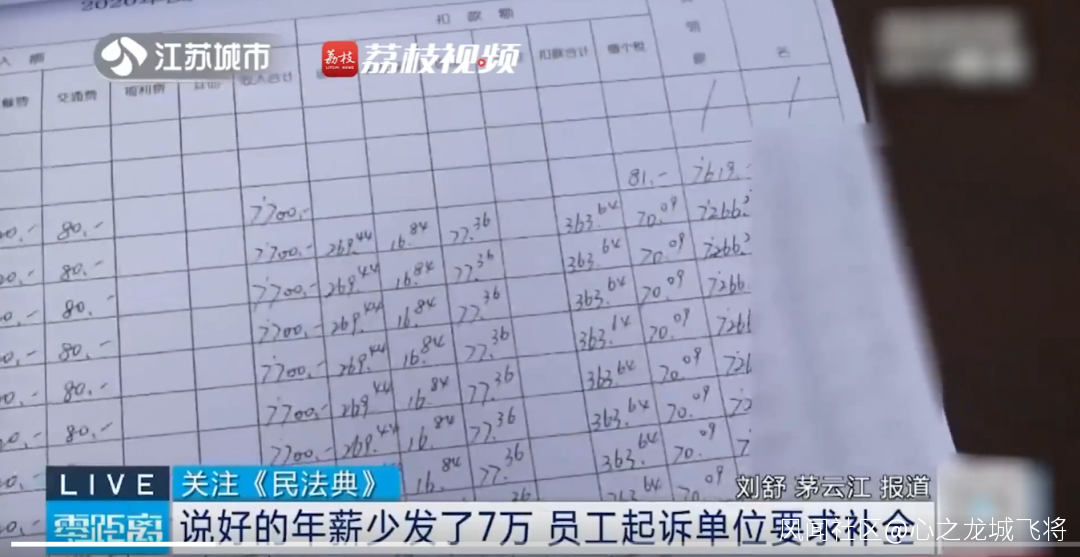 2020年
江苏城市
荔枝
荔枝视频
扣款额
交通费 福利费 收入合计 扣款合计
80.- 7700.- 81.- 7619.-
80.- 7700.- 269.44 16.84 77.36 363.64 70.09 7266.2
80.- 7700.- 269.44 16.84 77.36 363.64 70.09 7266.2
80.- 7700.- 269.44 16.84 77.36 363.64 70.09 7266.
80.- 7700.- 269.44 16.84 77.36 363.64 70.09
80.- 7700.- 269.44 16.84 77.36 363.64 70.09
7700.- 269.44 16.84 77.36 363.64 70.09
16.84 77.36 363.64 70.09
LIVE 关注《民法典》
刘舒 茅云江 报道
零距离 说好的年薪少发了7万 员工起诉单位要求补全
风闻社区@心之龙城飞将